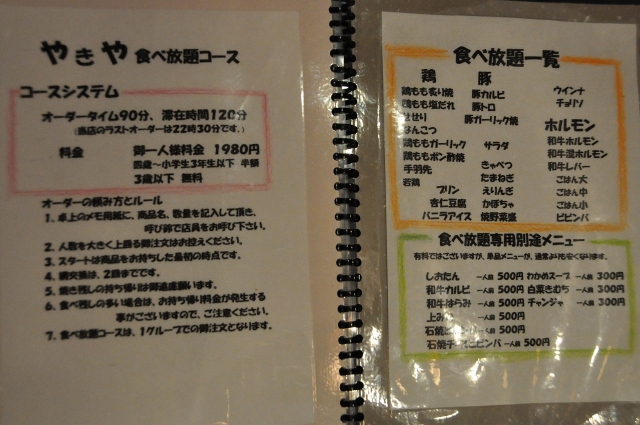 やきや 食べ放題コース
コースシステム
オーダータイム90分、滞在時間120分
(当店のラストオーダーは22時30分です。)
料金 御一人様料金 1980円
四歳〜小学生3年生以下 半額
3歳以下 無料
オーダーの頼み方とルール
1. 卓上のメモ用紙に、商品名、数量を記入して頂き、
呼び鈴で店員をお呼び下さい。
2. 人数を大きく上回る御注文はお控えください。
3. スタートは商品をお持ちした最初の時点です。
4. 網交換は、2回までです。
5. 焼き残しの持ち帰りは御遠慮願います。
6. 食べ残しの多い場合は、お持ち帰り料金が発生する
事がございますので、ご注意ください。
7. 食べ放題コースは、1グループでの御注文となります。
食べ放題一覧
鶏
鶏もも炙り焼
鶏もも塩だれ
せせり
なんこつ
鶏ももガーリック
鶏ももポン酢焼
手羽先
若鶏
プリン
杏仁豆腐
バニラアイス
豚
豚カルビ
豚トロ
豚ガーリック焼
サラダ
きゃべつ
たまねぎ
えりんぎ
かぼちゃ
焼野菜盛
ウインナ
チョリソ
ホルモン
和牛ホルモン
和牛混ホルモン
和牛レバー
ごはん大
ごはん中
ごはん小
ビビンバ
食べ放題専用別途メニュー
有料ではございますが、単品メニューが、通常よりも安くなります。
しおたん 一人前 500円 わかめスープ 一人前 300円
和牛カルビ 一人前 500円 白菜きむち 一人前 300円
和牛はらみ 一人前 500円 チャンジャ 一人前 300円
上み 一人前 500円
石焼 一人前 500円
石焼チ ビビンバ 一人前 500円